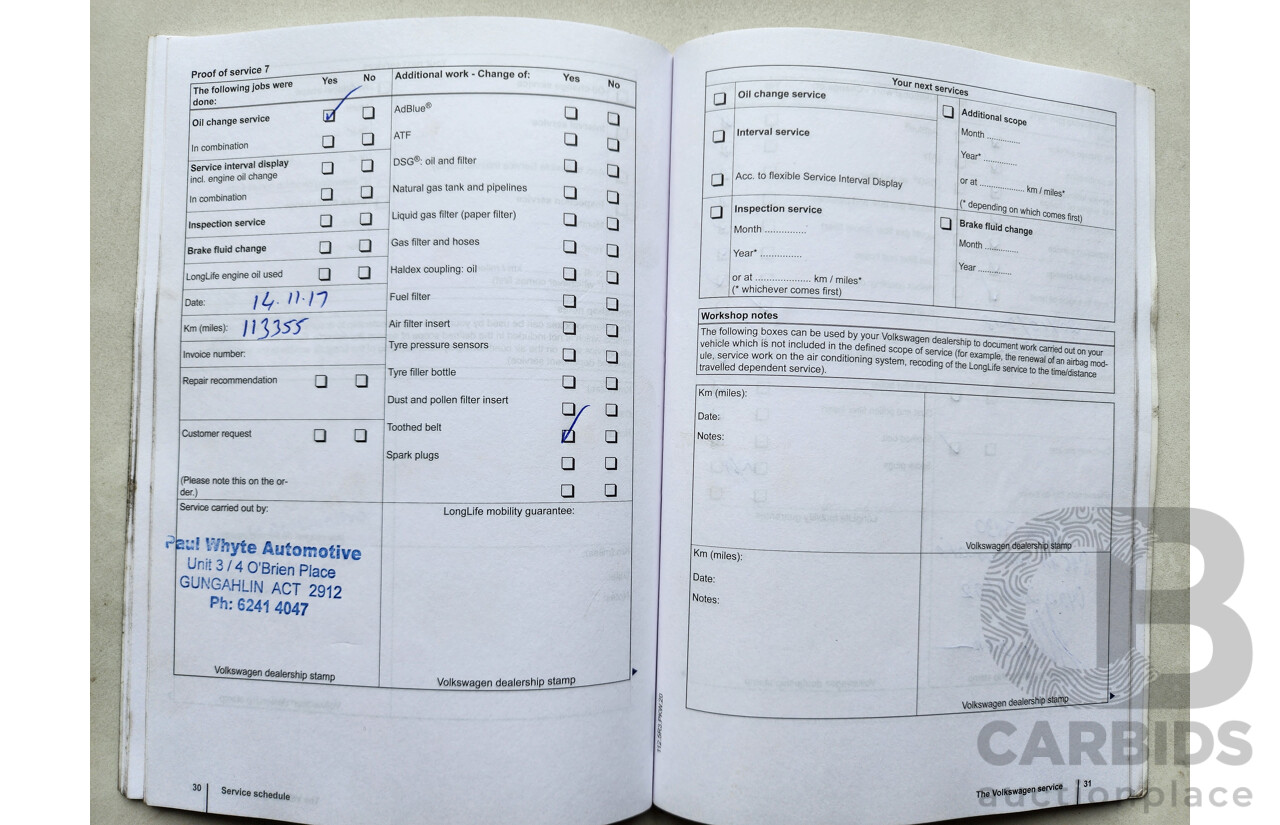 Proof of service 7
The following jobs were done: Yes No
Oil change service
In combination
Service interval display
incl. engine oil change
In combination
Inspection service
Brake fluid change
LongLife engine oil used
Date: 14.11.17
Km (miles): 113355
Invoice number:
Repair recommendation
Customer request
(Please note this on the or-
der.)
Additional work - Change of: Yes No
AdBlue®
ATF
DSG®: oil and filter
Natural gas tank and pipelines
Liquid gas filter (paper filter)
Gas filter and hoses
Haldex coupling: oil
Fuel filter
Air filter insert
Tyre pressure sensors
Tyre filler bottle
Dust and pollen filter insert
Toothed belt
Spark plugs
Service carried out by:
Paul Whyte Automotive
Unit 3 / 4 O'Brien Place
GUNGAHLIN ACT 2912
Ph: 6241 4047
Volkswagen dealership stamp
LongLife mobility guarantee:
Volkswagen dealership stamp
30 Service schedule
Your next services
Oil change service
Interval service
Acc. to flexible Service Interval Display
Inspection service
Month ..............
Year* ..............
or at ................... km / miles*
(* whichever comes first)
Additional scope
Month ............
Year* ............
or at ................... km / miles*
(* depending on which comes first)
Brake fluid change
Month ............
Year ............
Workshop notes
The following boxes can be used by your Volkswagen dealership to document work carried out on your
vehicle which is not included in the defined scope of service (for example, the renewal of an airbag mod-
ule, service work on the air conditioning system, recoding of the LongLife service to the time/distance
travelled dependent service).
Km (miles):
Date:
Notes:
Volkswagen dealership stamp
Km (miles):
Date:
Notes:
Volkswagen dealership stamp
The Volkswagen service 31
CARBIDS
auctionplace